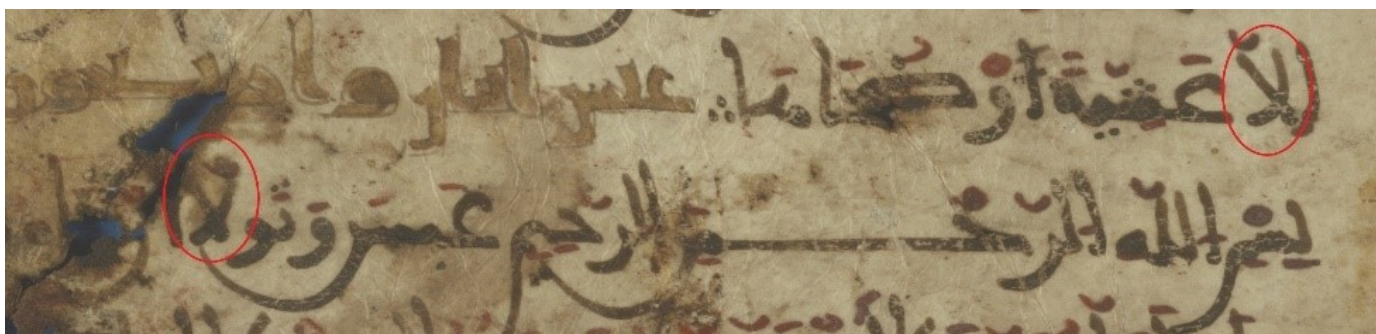 الا عشية او ضحاها عبس اثنان واربعون
بسم الله الرحمن الرحيم عبس وتولا